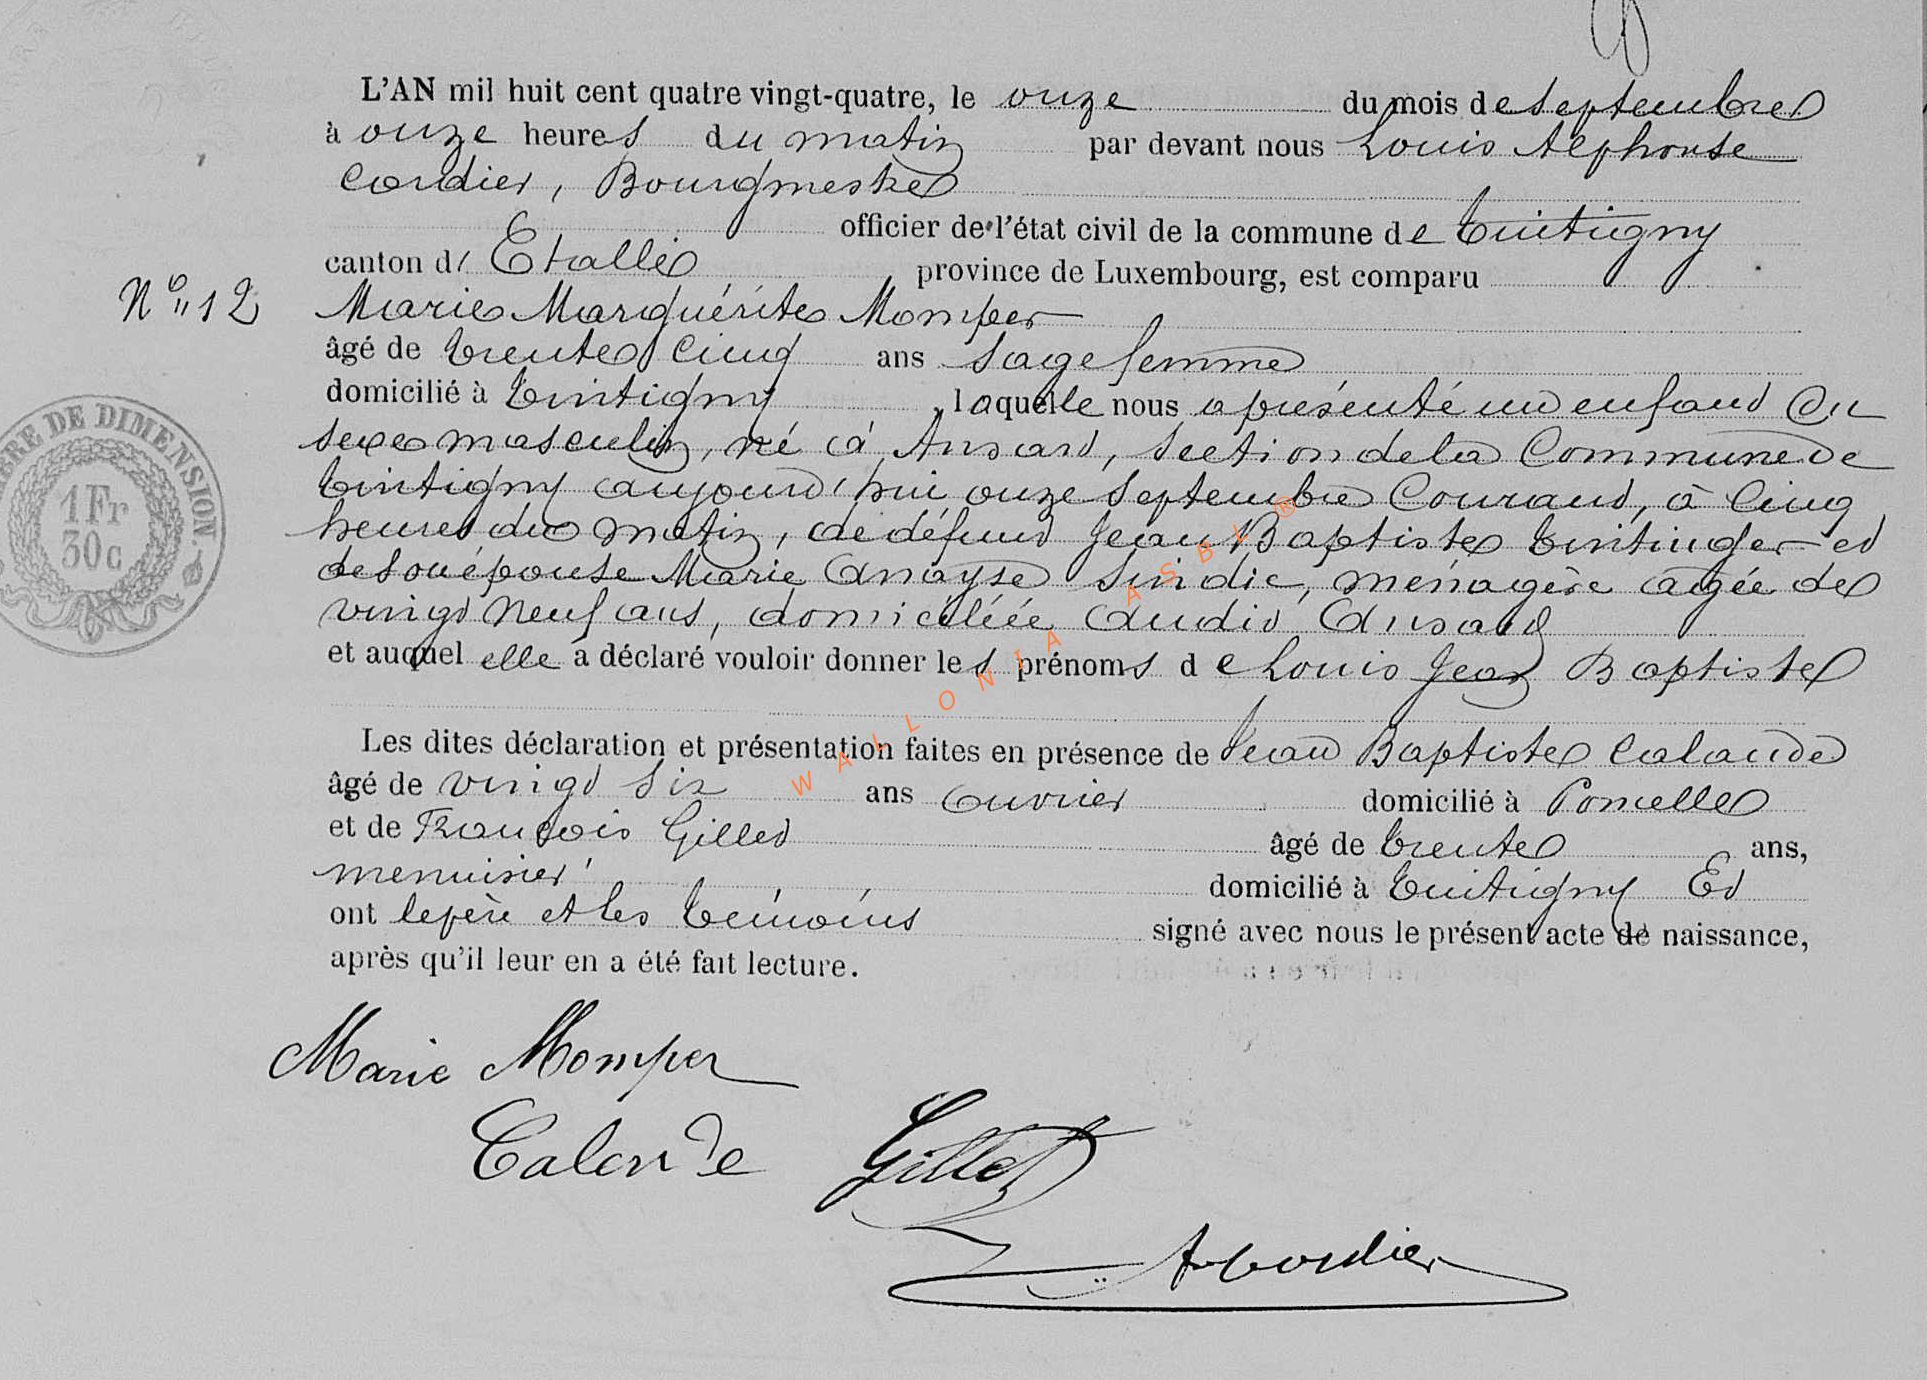 L'AN mil huit cent quatre vingt-quatre, le onze du mois de septembre
à onze heures du matin par devant nous Louis Alphonse
Cordier, Bourgmestre
officier de l'état civil de la commune de Tintigny
canton d' Etalle province de Luxembourg, est comparu
N° 12 Marie Marguérite Momper
âgé de trente cinq ans sage femme
domicilié à Tintigny, laquelle nous a présenté un enfant du
sexe masculin, né à Ansart, section de la Commune de
Tintigny aujourd'hui onze septembre Courant, à cinq
heures du matin, de défunt Jean Baptiste Tintinger et
de son épouse Marie Anayse Sindic, ménagère agée de
vingt neuf ans, domiciliée audit Ansart
et auquel elle a déclaré vouloir donner les prénoms de Louis Jean Baptiste
Les dites déclaration et présentation faites en présence de Jean Baptiste Calande
âgé de vingt six ans ouvrier domicilié à Poncelle
et de François Gillet âgé de trente ans,
menuisier domicilié à Tintigny Et
ont le père et les témoins signé avec nous le présent acte de naissance,
après qu'il leur en a été fait lecture.
TIMBRE DE DIMENSION.
1 Fr
30 c
WALLONIA ASBL ®
Marie Momper
Calande Gillet
A Cordier